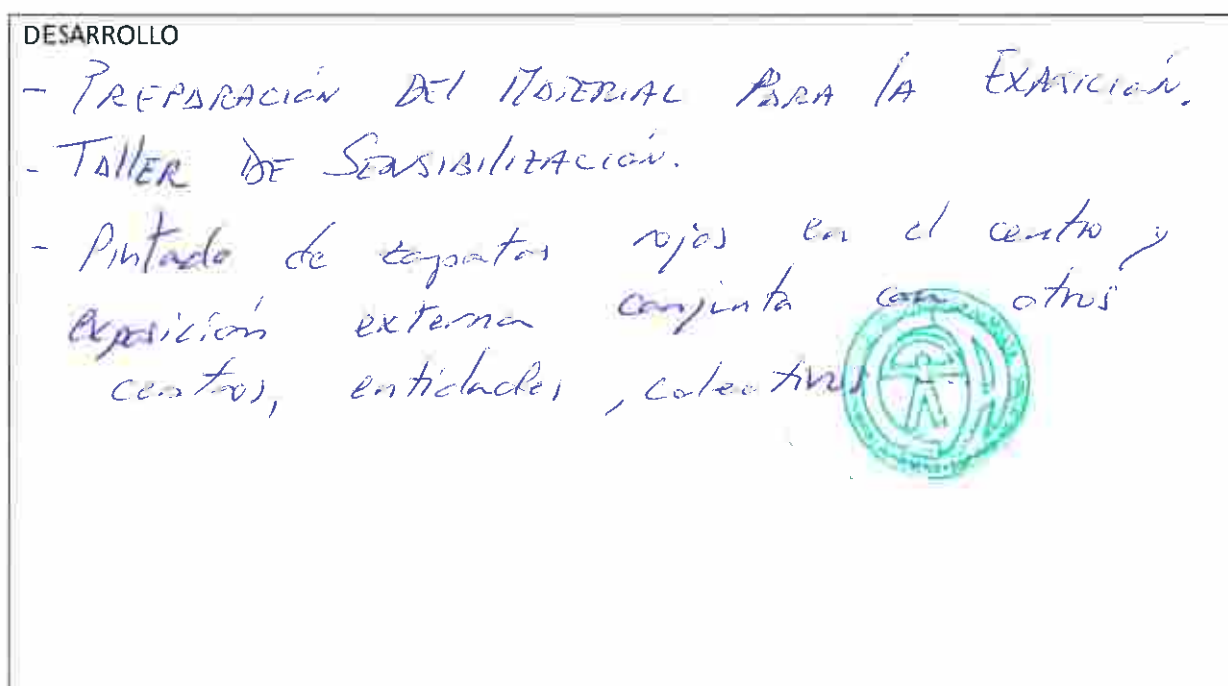 DESARROLLO
- PREPARACIÓN DEL MATERIAL PARA LA EXPOSICIÓN.
- TALLER DE SENSIBILIZACIÓN.
- Pintado de zapatos rojos en el centro y
exposición externa conjunta con otros
centros, entidades, colectivos